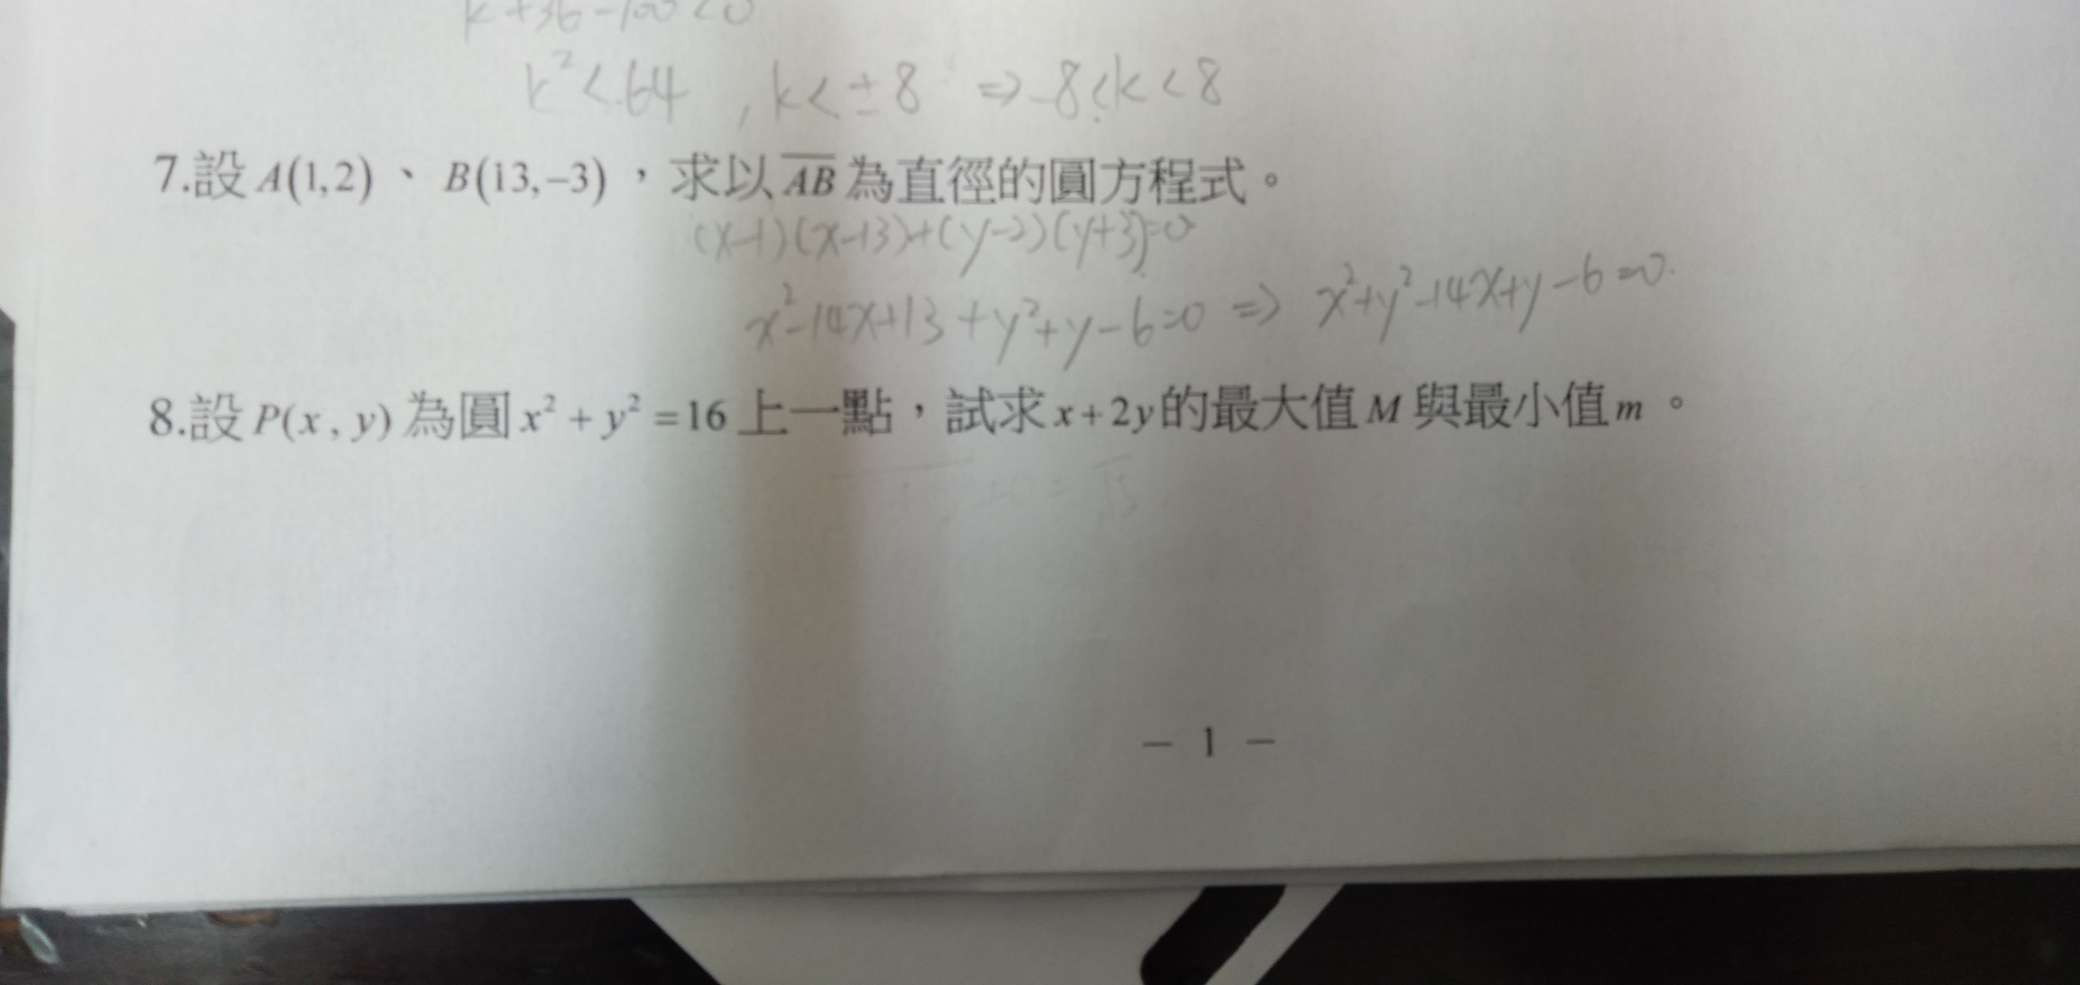 k²+36-100<0
k²<64 , k<±8 ⇒ -8<k<8
7.設A(1,2)、B(13,-3),求以AB為直徑的圓方程式。
(x-1)(x-13)+(y-2)(y+3)=0
x²-14x+13+y²+y-6=0 ⇒ x²+y²-14x+y-6=0
8.設P(x, y)為圓x²+y²=16上一點,試求x+2y的最大值M與最小值m。
- 1 -